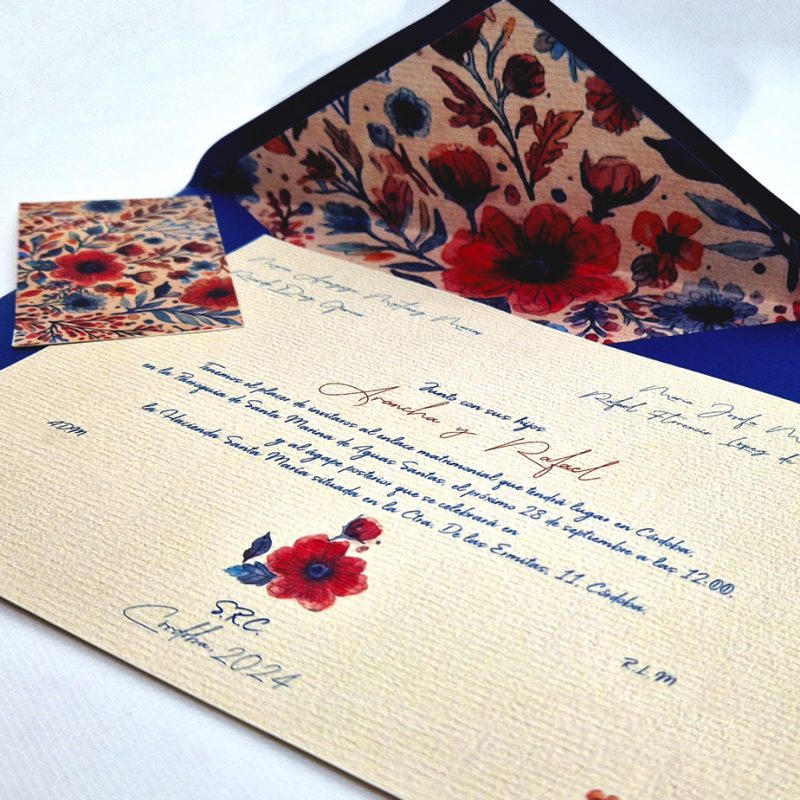 Junto con sus hijos
Arancha y Rafael
Tenemos el placer de invitaros al enlace matrimonial que tendrá lugar en Córdoba,
en la Parroquia de Santa Marina de Aguas Santas, el próximo 28 de septiembre a las 12:00,
y al ágape posterior que se celebrará en
la Hacienda Santa María situada en la Ctra. De las Ermitas, 11. Córdoba.
S.R.C.
Córdoba 2024
R.L.M